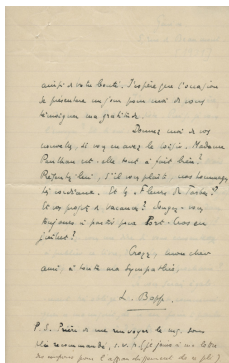 ainsi de votre bonté. J'espère que l'occasion
se présentera un jour pour moi de vous
témoigner ma gratitude.
Donnez moi de vos
nouvelles, si vous en avez le loisir. Madame
Paulhan est-elle tout à fait bien?
Présentez lui, s'il vous plaît, nos hommages
cordiaux. Et les "Fleurs de Tarbes"?
Et vos projets de vacances? Songez-vous
toujours à partir pour Port-Cros en
juillet?
Croyez, mon cher
ami, à toute ma sympathie,
L. Bopp.
P.S. Prière de me renvoyer le ms. sous
pli recommandé, s.v.p. (je joins à ma lettre
des coupons pour l'affranchissement de ce pli)